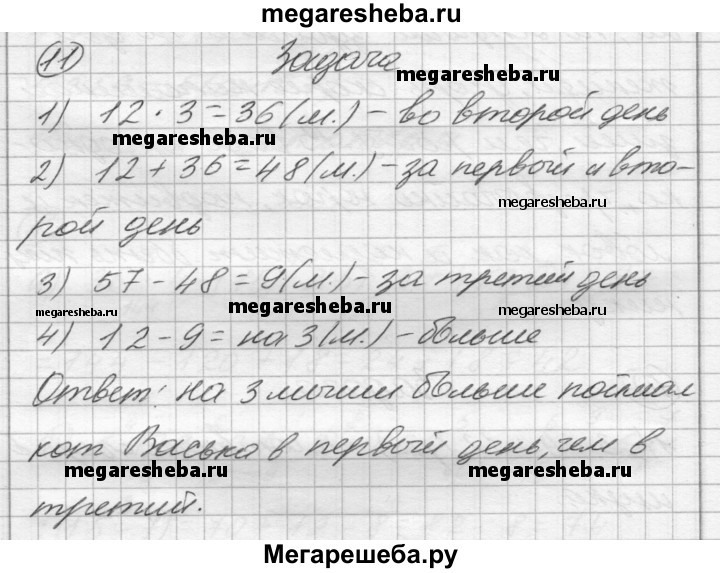 megaresheba.ru
11 Задача
megaresheba.ru
1) 12 · 3 = 36 (м.) – во второй день
megaresheba.ru
2) 12 + 36 = 48 (м.) – за первый и вто-
megaresheba.ru
рой день
3) 57 – 48 = 9 (м.) – за третий день
megaresheba.ru megaresheba.ru megaresheba.ru
4) 12 – 9 = на 3 (м.) – больше
Ответ: на 3 мыши больше поймал
кот Васька в первый день, чем в
megaresheba.ru megaresheba.ru
третий.
Мегарешеба.ру